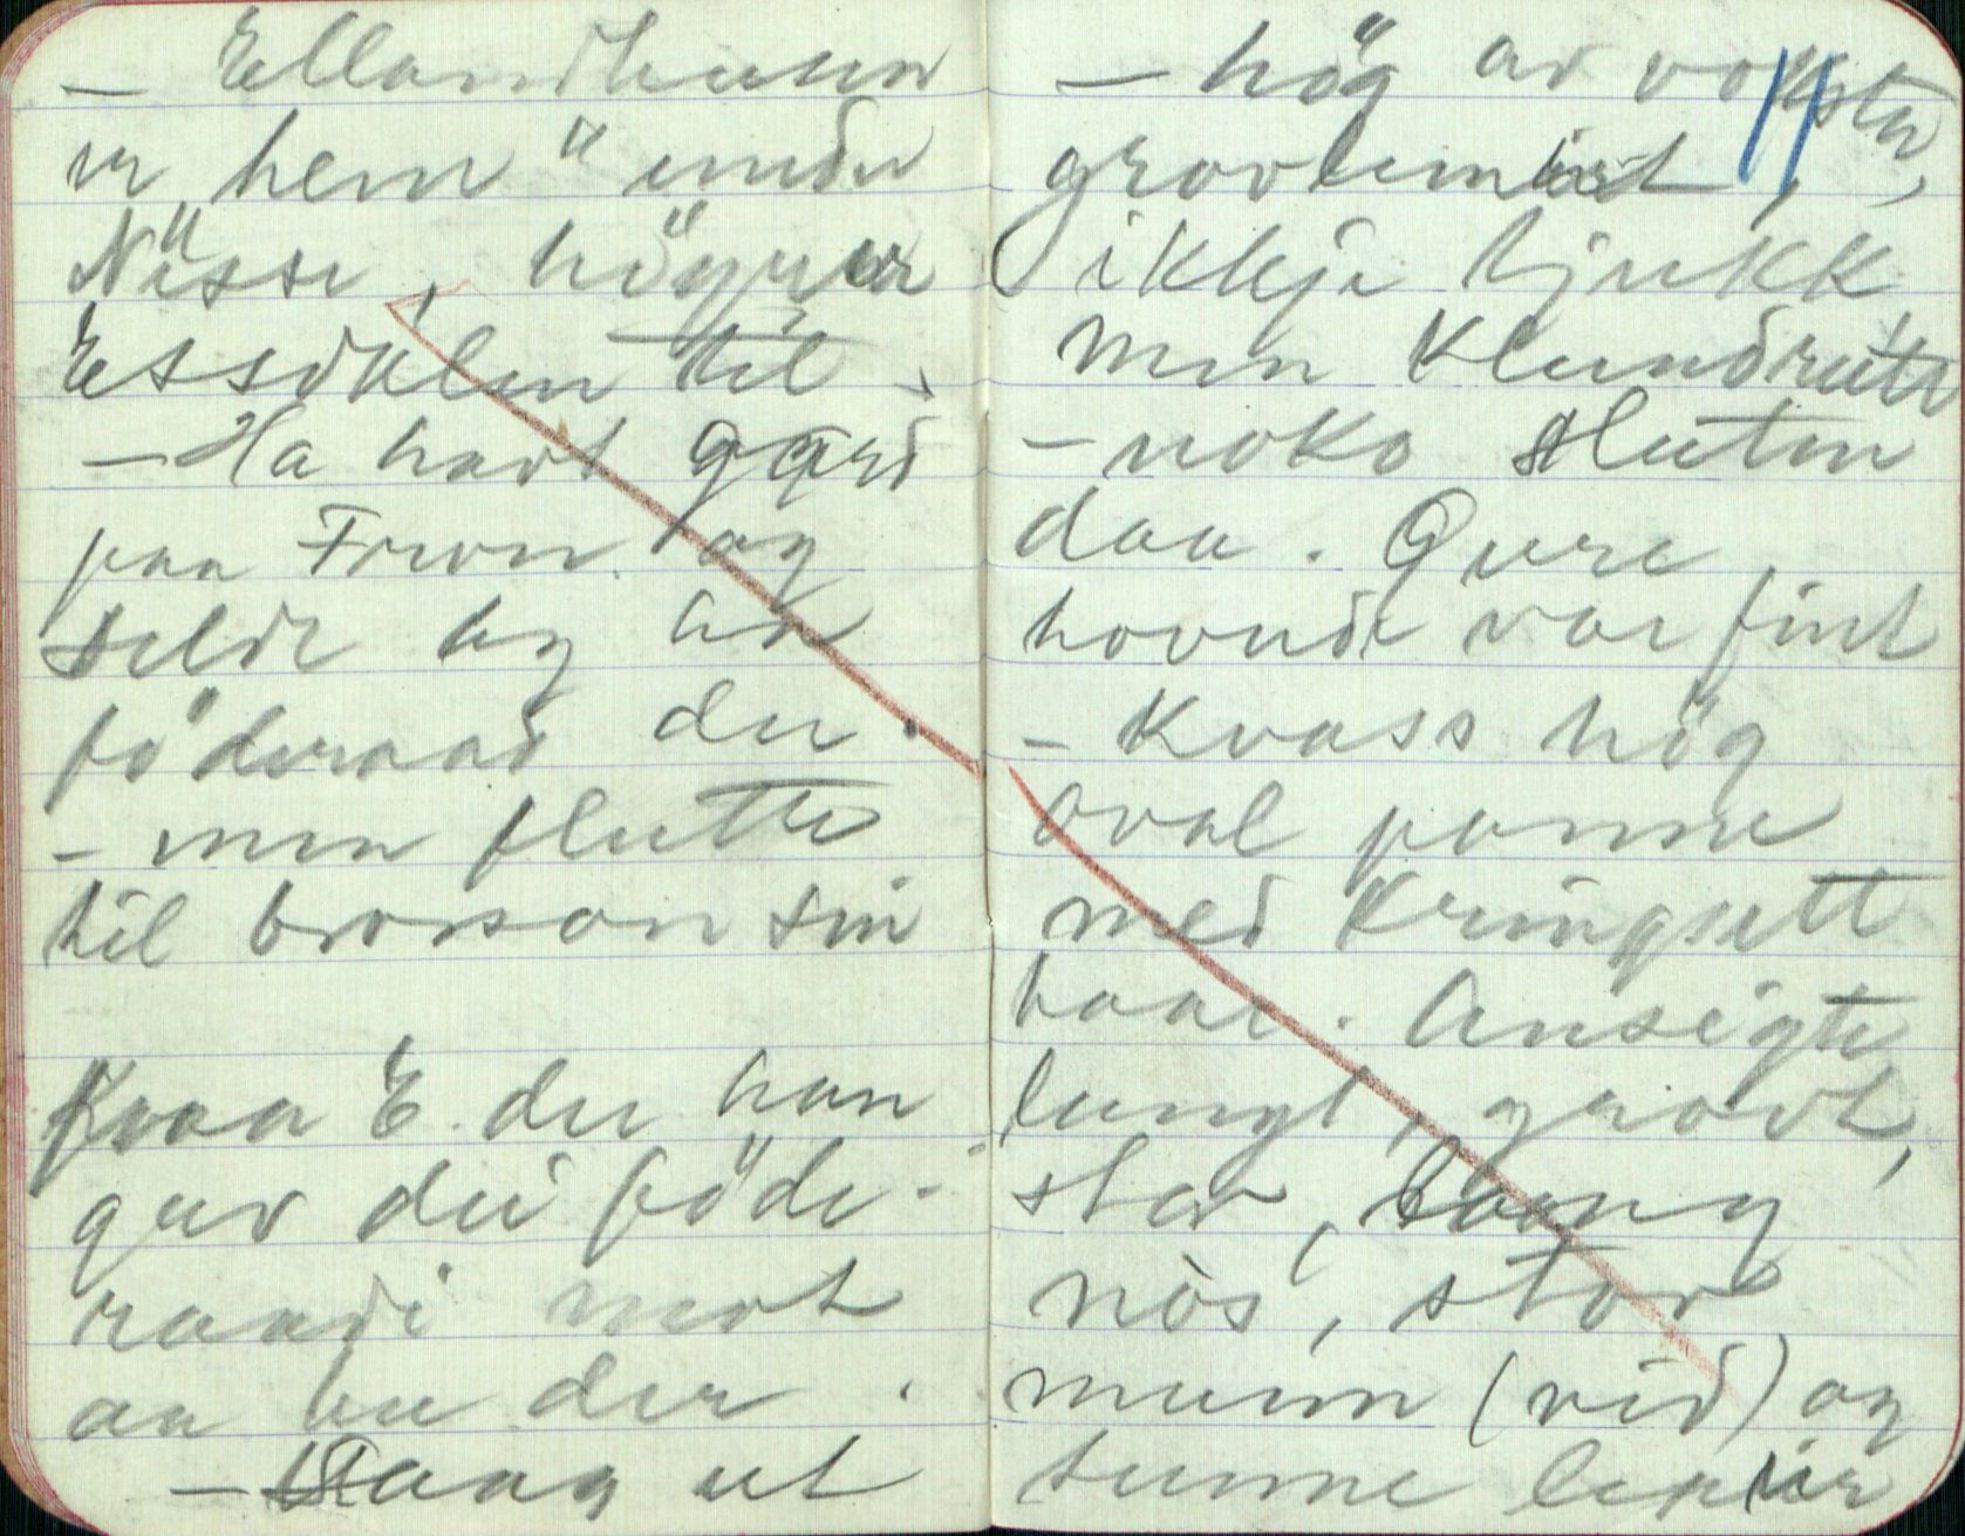 — Ellandhusn
er hem" under
Nisse, högre er
Essdalen til
— Ha havt gard
paa Fron og
selde og ha
föderaad der.
— men flutte
til brorson sin
Kvaa E. der han
gav dei föde-
raadi mot
aa bu der.
— Saag ut
— hög av vokster,
grovlemirt,
ikkje tjukk
men klundrute
— noko sluten
daa. Övre
hovude var fint
— kvass hög
oval panne
med kringsett
haar. Ansigte
langt, grovt,
stor, lang
nòs, stor
munn (vid) og
tunne lepur
11